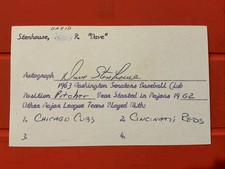 DAVID
Stenhouse, R. "Dave"
Autograph Dave Stenhouse
1963 Washington Senators Baseball Club
Position Pitcher Year Started in Majors 1962
Other Major League Teams Played With:
1. CHICAGO CUBS 2. CINCINNATI REDS
3. 4.